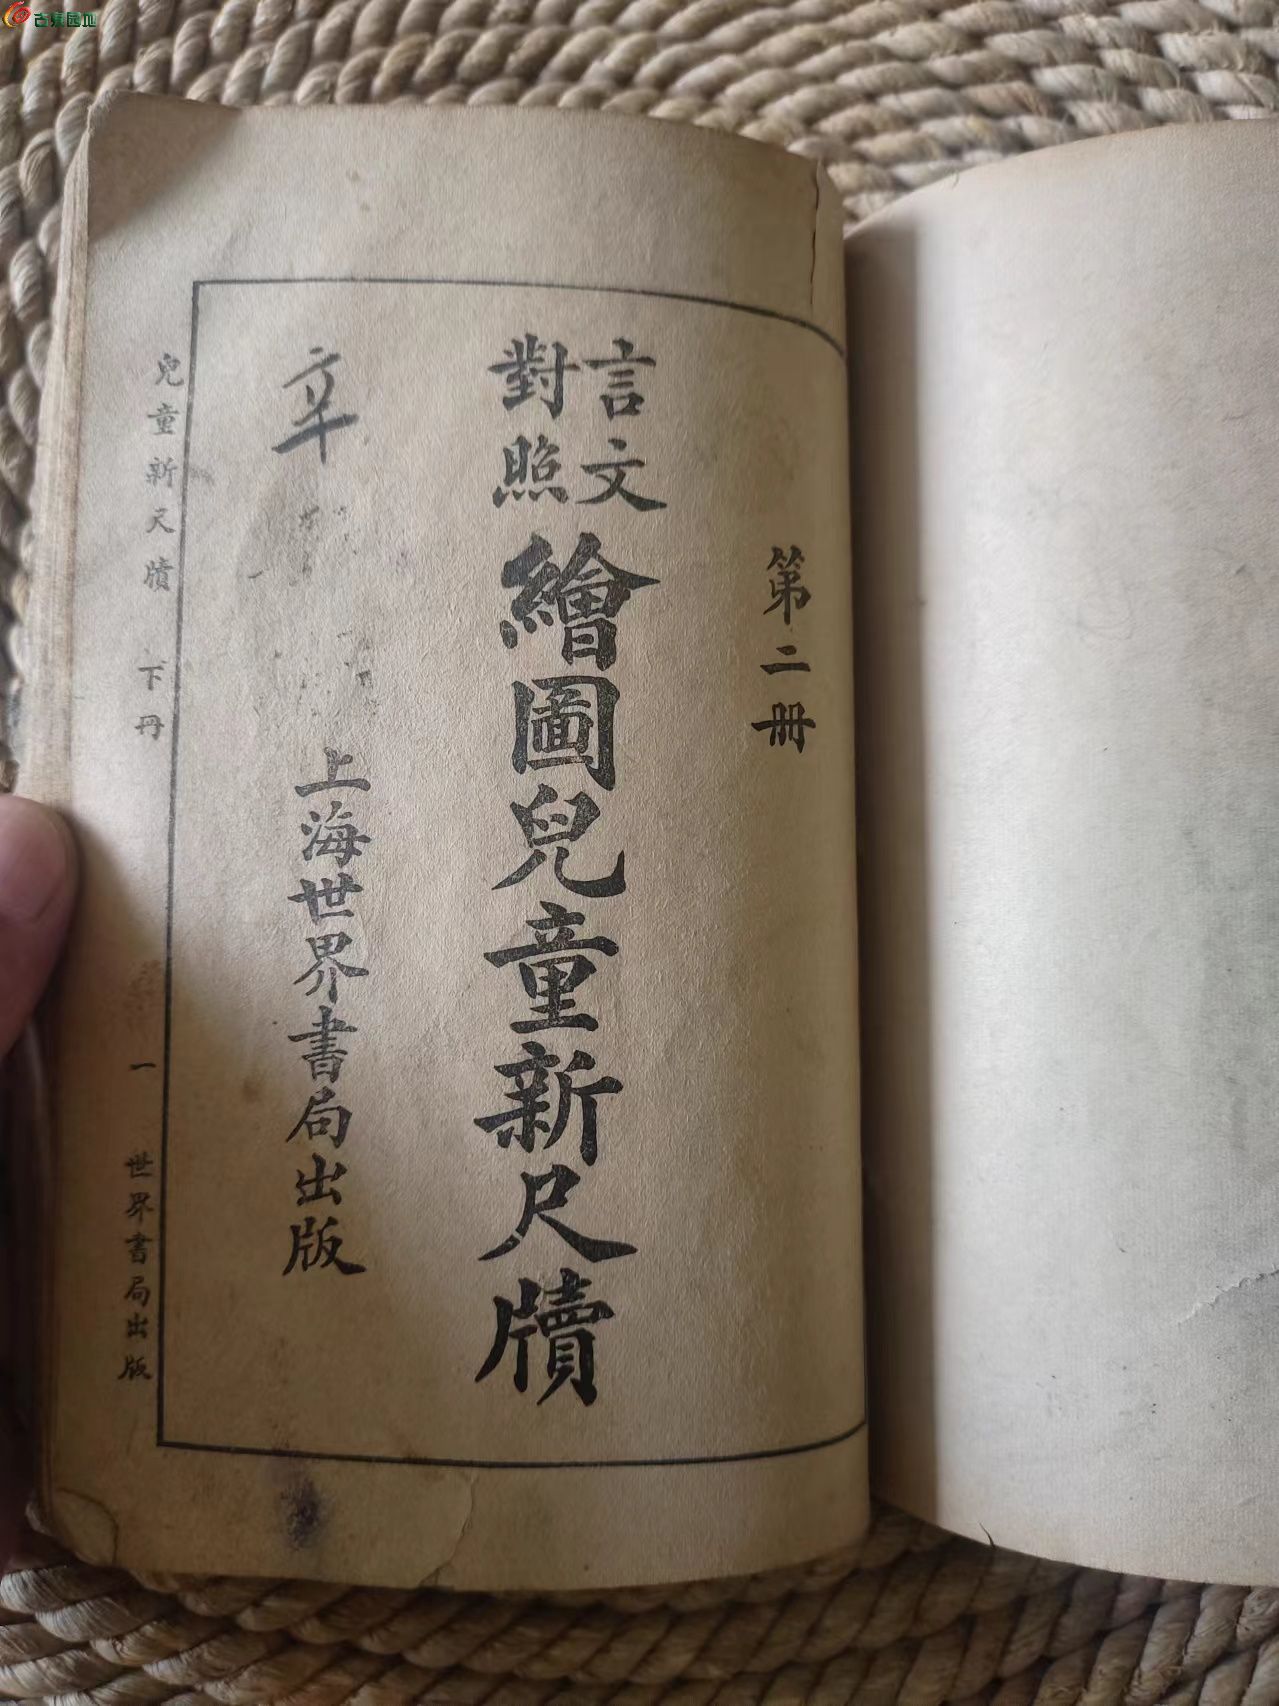 古泉园地
第二冊
言文
對照
繪圖兒童新尺牘
上海世界書局出版
兒童新尺牘 下冊 一 世界書局出版